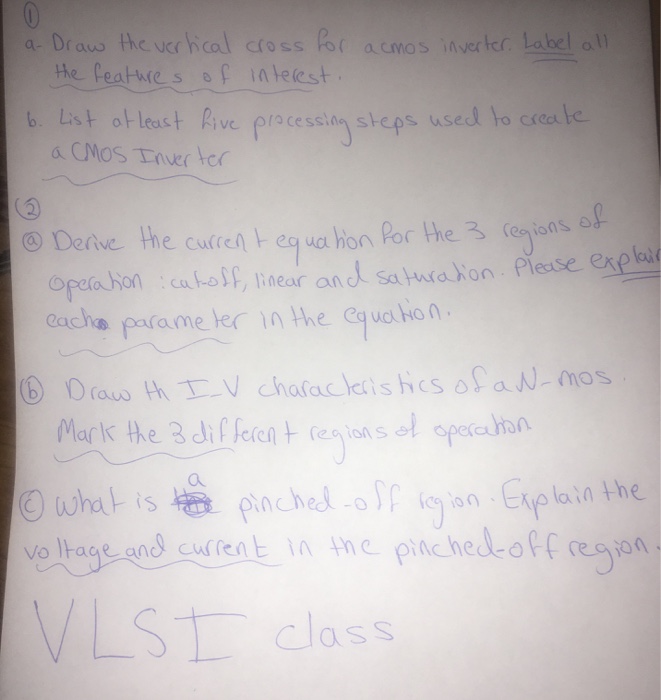 ①
a- Draw the vertical cross for a cmos inverter. Label all
the features of interest.
b. List atleast five processing steps used to create
a CMOS Inverter
②
ⓐ Derive the current equation for the 3 regions of
operation : cut-off, linear and saturation. Please explain
each parameter in the equation.
ⓑ Draw th I-V characteristics of a N-mos.
Mark the 3 different regions of operation
ⓒ what is a pinched-off region. Explain the
voltage and current in the pinched-off region.
VLSI class